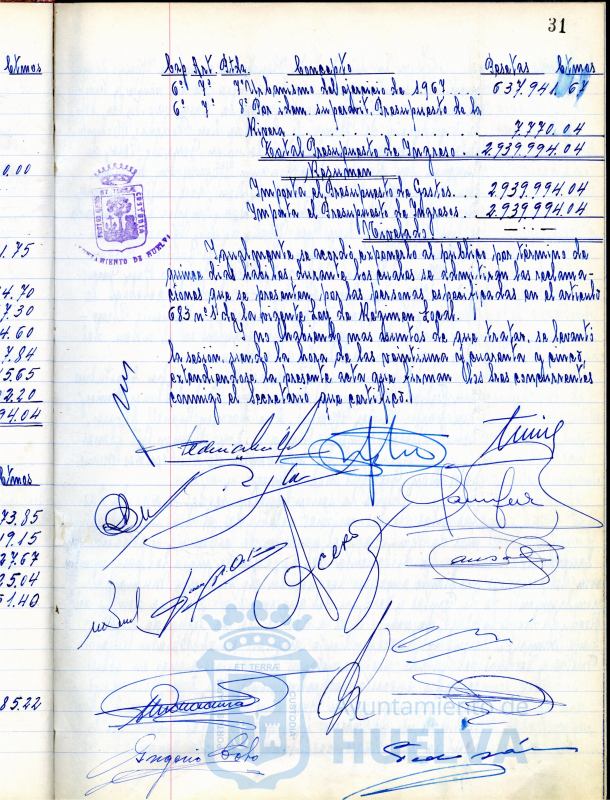 31
Ctmos
0.00
1.75
4.70
7.30
4.60
7.84
5.65
2.20
94.04
Ctmos
73.85
19.15
27.67
25.04
51.40
85.22
Cap Art. Ptda. Concepto Pesetas Ctmos
6º 7º 7º Urbanismo del ejercicio de 1967 .... 637.941.67
6º 7º 8º Por idem. superabit. Presupuesto de la
Rivera .................... 7.770.04
Total Presupuesto de Ingreso .. 2.939.994.04
Resumen
Importa el Presupuesto de Gastos... 2.939.994.04
Importa el Presupuesto de Ingresos.. 2.939.994.04
Nivelado — . —
Igualmente se acordó exponerlo al público por término de
quince dias hábiles, durante los cuales se admitiran las reclama-
ciones que se presenten, por las personas especificadas en el articulo
683 nº 1º de la vigente Ley de Régimen Local.
Y no habiendo mas asuntos de que tratar, se levantó
la sesión, siendo la hora de las veintiuna y cuarenta y cinco,
extendiendose la presente acta que firman los Sres concurrentes
conmigo el Secretario que certifico.
PORTUS MARIS ET TERRAE CUSTODIA
AYUNTAMIENTO DE HUELVA
Acero
Gregorio
ET TERRÆ
CUSTODIA
Ayuntamiento de
HUELVA